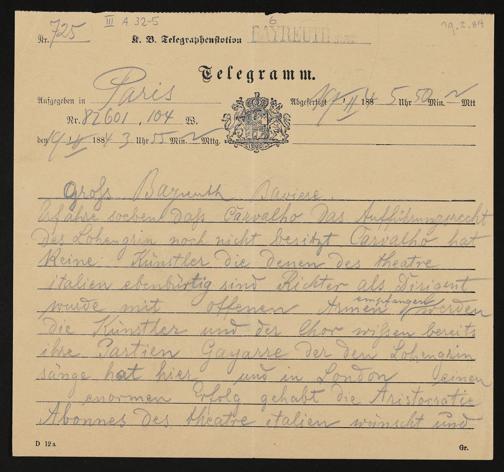 III A 32-5
6
19.2.84
Nr. 725 K. B. Telegraphenstation BAYREUTH
Telegramm.
Aufgegeben in Paris
Abgefertigt 19/II 1884 5 Uhr 50 Min. Mtt
Nr. 82601, 104 W.
den 19/II 1884 3 Uhr 55 Min. Mttg.
Gross Bayreuth Baviere
Erfahre soeben dass Carvalho das Aufführungsrecht
des Lohengrin noch nicht besitzt Carvalho hat
keine Künstler die denen des theatre
italien ebenbürtig sind Richter als Dirigent
wurde mit offenen Armen empfangen werden
die Künstler und der Chor wissen bereits
ihre Partien Gayarre der den Lohengrin
sänge hat hier und in London einen
enormen Erfolg gehabt die Aristocratie
Abonnes des theatre italien wünscht und
D 12a. Gr.